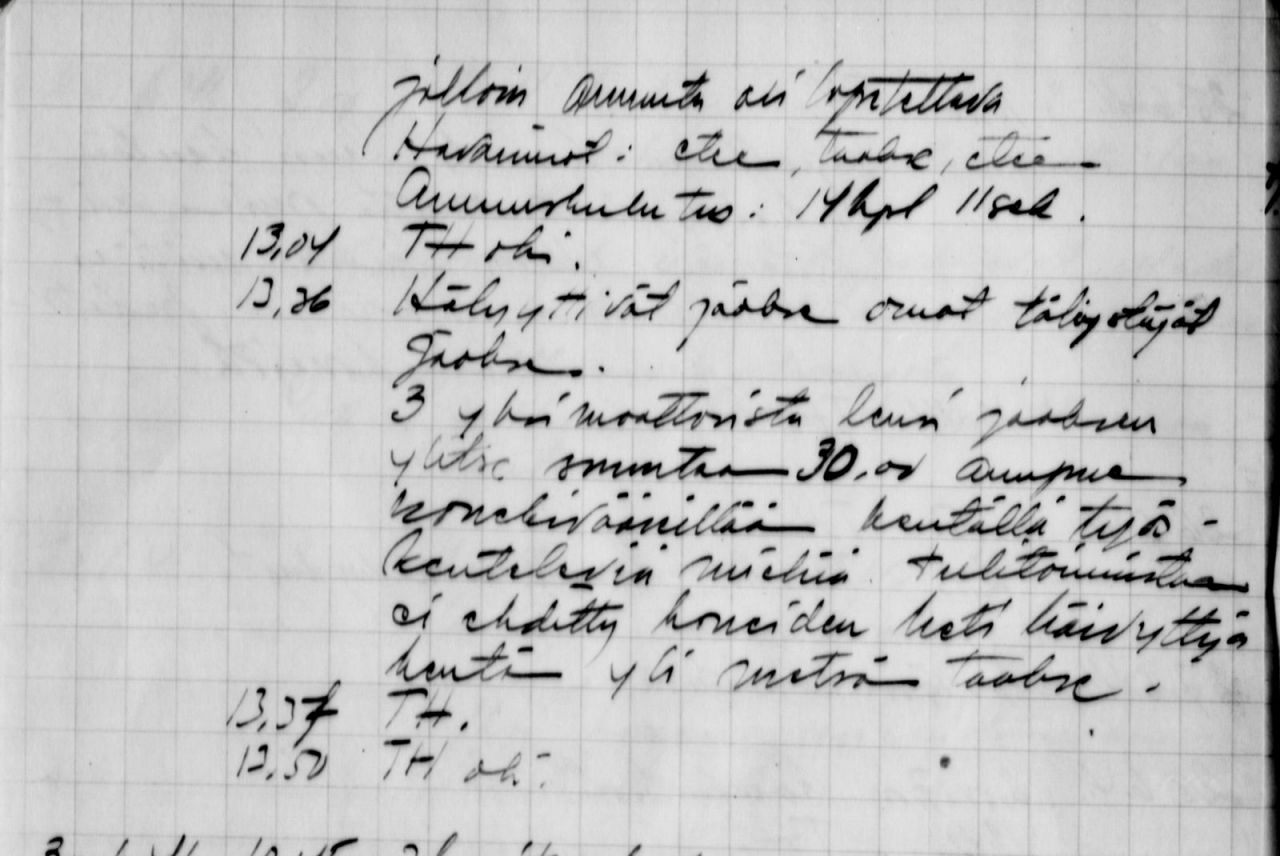 jolloin ammunta oli lopetettava
Havainnot: etee, taakse, etee
Ammuskulutus: 14 kpl 11 sek.
13,04 TH ohi.
13,36 Hälyyttivät jaokse omat tähystäjät
Jaokse.
3 yksimoottorista lensi jaoksen
ylitse suuntaa 30.00 ampue
konekivääreillää kentällä työs-
kenteleviä miehiä. Tulitoimintaa
ei ehditty koneiden heti hävyttyä
kentä yli metsä taakse.
13,37 TH.
13,50 TH ohi.